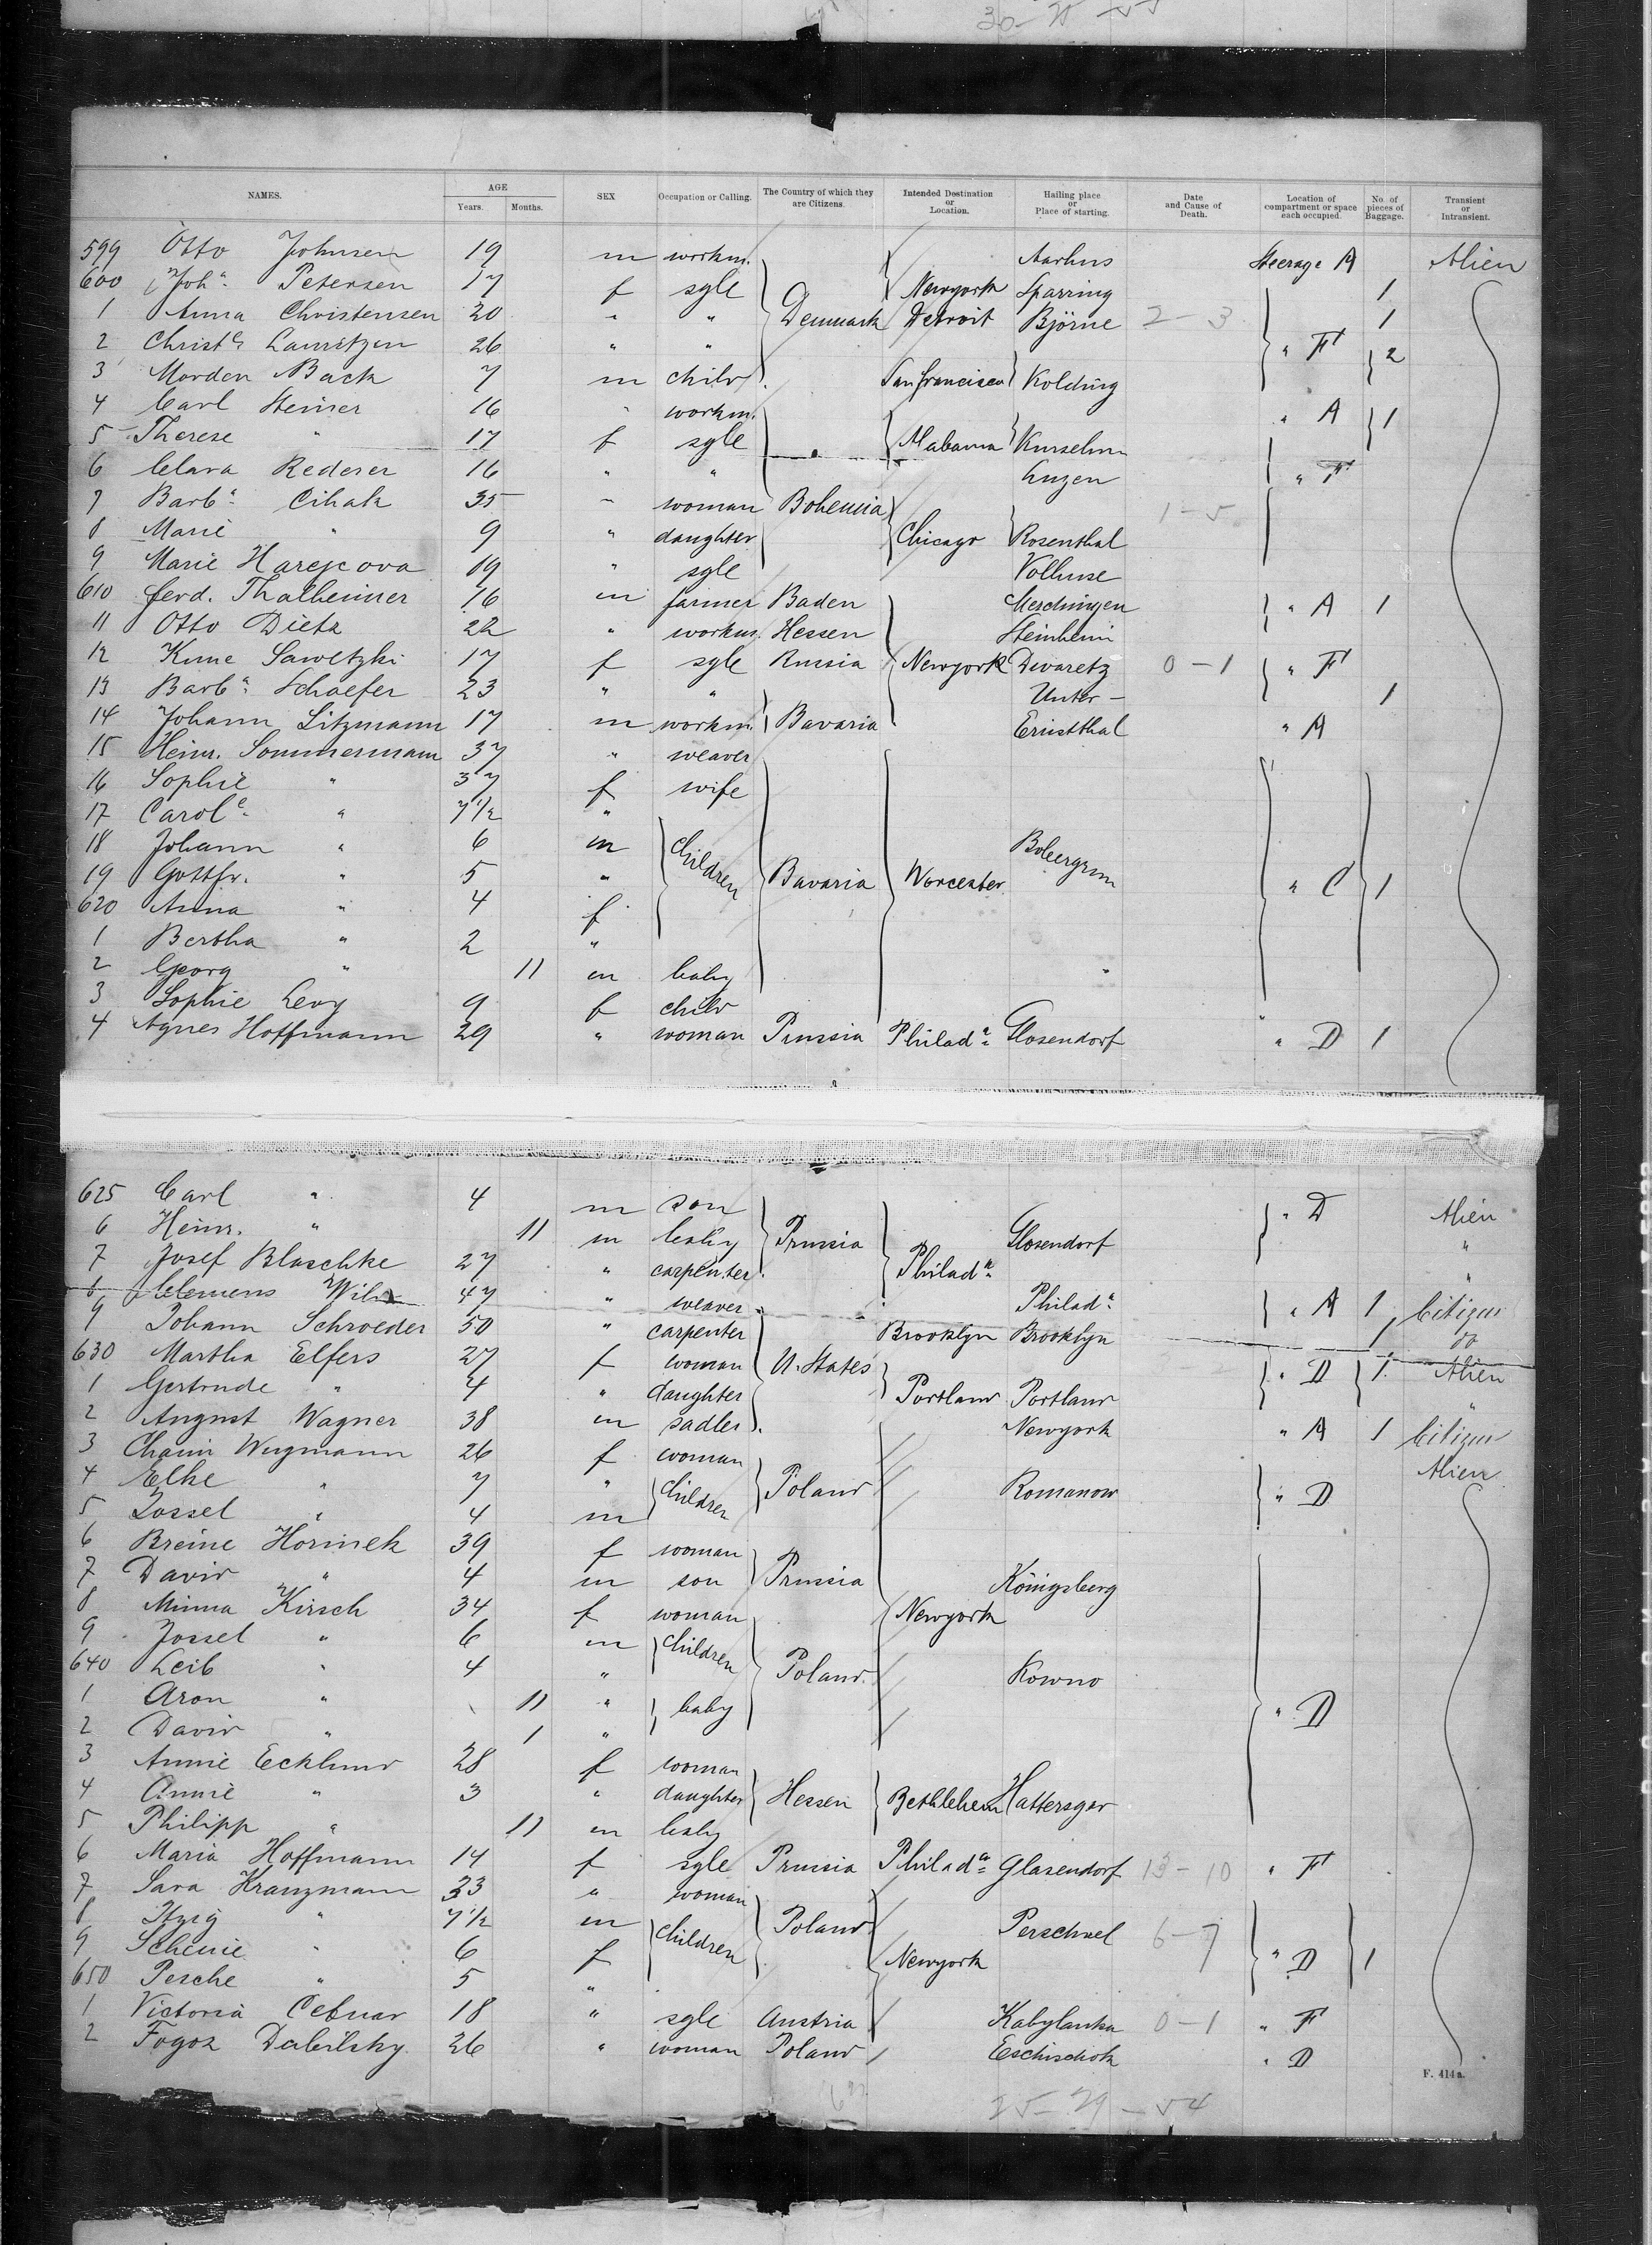 30-25-55
NAMES. AGE Years. Months. SEX Occupation or Calling. The Country of which they are Citizens. Intended Destination or Location. Hailing place or Place of starting. Date and Cause of Death. Location of compartment or space each occupied. No. of pieces of Baggage. Transient or Intransient.
599 Otto Johnsen 19 m workm. Aarhus Steerage A Alien
600 Joh.a Petersen 17 f sgle Newyork Sparring 1
1 Anna Christensen 20 " " Denmark Detroit Björne 2-3 1
2 Christ.e Lauritzen 26 " " " F 2
3 Morden Back 7 m child San francisco Kolding
4 Carl Steiner 16 " workm. " A 1
5 Therese " 17 f sgle Alabama
6 Clara Rederer 16 " " Luzen " F
7 Barb.a Cihak 35 " woman Bohemia 1-5
8 Marie " 9 " daughter Chicago Rosenthal
9 Marie 19 " sgle
610 Ferd. Thalheimer 16 m farmer Baden " A 1
11 Otto Dietz 22 " workm. Hessen Steinheim
12 Sawetzki 17 f sgle Russia Newyork 0-1 " F
13 Barb.a Schaefer 23 " " Unter- 1
14 Johann Litzmann 17 m workm. Bavaria Ernstthal " A
15 Heinr. Sommermann 37 " weaver
16 Sophie " 37 f wife
17 Carol.e " 7 1/2 "
18 Johann " 6 m children
19 Gottfr. " 5 " Bavaria Worcester " C 1
620 Anna " 4 f
1 Bertha " 2 "
2 Georg " 11 m baby "
3 Sophie Levy 9 f child "
4 Agnes Hoffmann 29 " woman Prussia Philad.a Glosendorf " D 1
625 Carl " 4 m son " D Alien
6 Heinr. " 11 m baby Prussia Glosendorf "
7 Josef Blaschke 27 " carpenter Philad.a "
8 Clemens 47 " weaver Philad.a " A 1 Citizen
9 Johann Schroeder 50 " carpenter Brooklyn Brooklyn 1 do
630 Martha Elfers 27 f woman U. States " D 1 Alien
1 Gertrude " 4 " daughter Portland Portland "
2 August Wagner 38 m sadler Newyork " A 1 Citizen
3 Chaim Wugmann 26 f woman Alien
4 Elke " 7 " children Poland Romanow " D
5 Jossel " 4 m
6 Breine Horinek 39 f woman
7 David " 4 m son Prussia Königsberg
8 Minna Kirsch 34 f woman Newyork
9 Jossel " 6 m children
640 Leib " 4 " Poland Kowno
1 Aron " 11 " baby " D
2 David " 1 "
3 Annie Ecklund 28 f woman
4 Annie " 3 " daughter Hessen Bethlehem
5 Philipp " 11 m baby
6 Maria Hoffmann 14 f sgle Prussia Philad.a Glasendorf 13-10 " F
7 Sara Kranzmann 33 " woman
8 Itzig " 7 1/2 m children Poland 6-7
9 Scheine " 6 f Newyork " D 1
650 Pesche " 5 "
1 Victoria 18 " sgle Austria Kabylanka 0-1 " F
2 26 " woman Poland Eschischok " D
F. 414a.
25-29-54